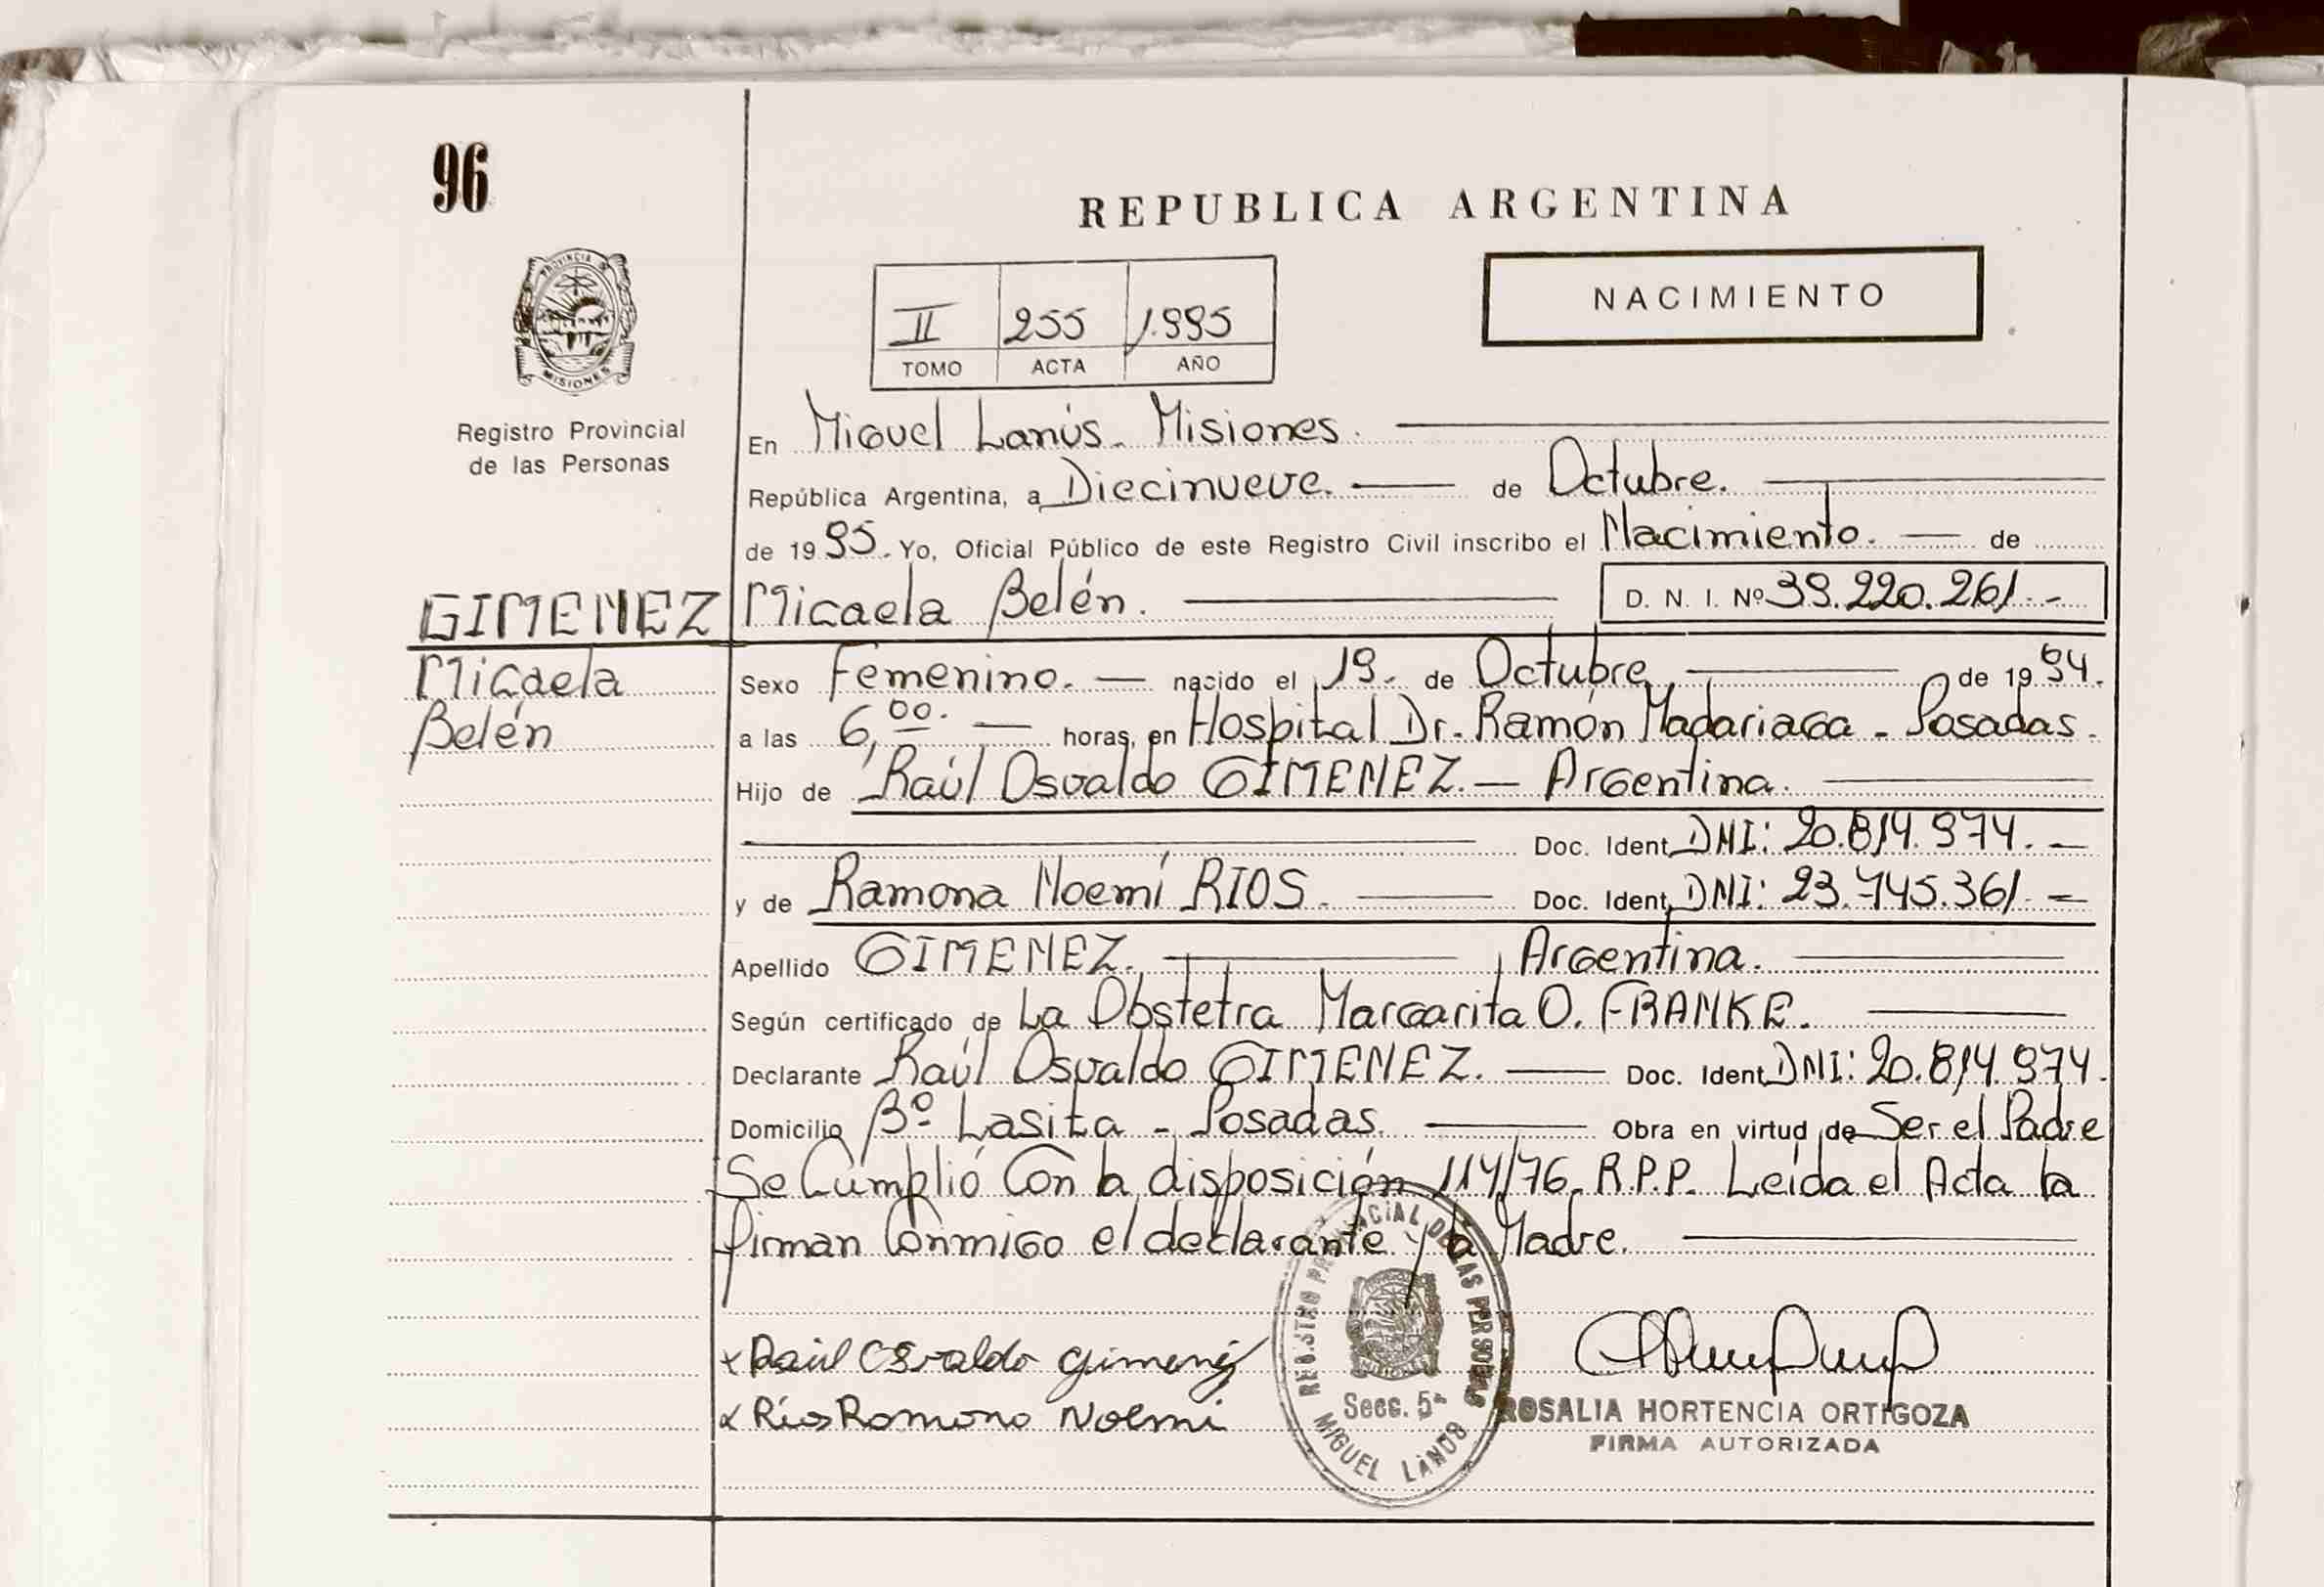 96
REPUBLICA ARGENTINA
PROVINCIA D
MISIONES
NACIMIENTO
II 255 1.995
TOMO ACTA AÑO
Registro Provincial
de las Personas
En Miguel Lanús - Misiones.
República Argentina, a Diecinueve. de Octubre.
de 1995. Yo, Oficial Público de este Registro Civil inscribo el Nacimiento. de
GIMENEZ Micaela Belén. D. N. I. Nº 39.220.261.-
Micaela
Belén
Sexo Femenino. nacido el 19. de Octubre de 1994.
a las 6,00. horas, en Hospital Dr. Ramón Madariaga - Posadas.
Hijo de Raúl Osvaldo GIMENEZ. - Argentina.
Doc. Ident. DNI: 20.814.974.-
y de Ramona Noemí RIOS. Doc. Ident. DNI: 23.745.361.-
Apellido GIMENEZ. Argentina.
Según certificado de La Obstetra Margarita O. FRANKE.
Declarante Raúl Osvaldo GIMENEZ. Doc. Ident. DNI: 20.814.974.
Domicilio Bº Lasita - Posadas. Obra en virtud de Ser el Padre
Se Cumplió Con la disposición 114/76. R.P.P. Leída el Acta la
firman Conmigo el declarante y la Madre.
x Raúl Osvaldo Gimenez
x Ríos Ramona Noemi
REGISTRO PROVINCIAL DE LAS PERSONAS
Secc. 5ª
MIGUEL LANÚS
ROSALIA HORTENCIA ORTIGOZA
FIRMA AUTORIZADA